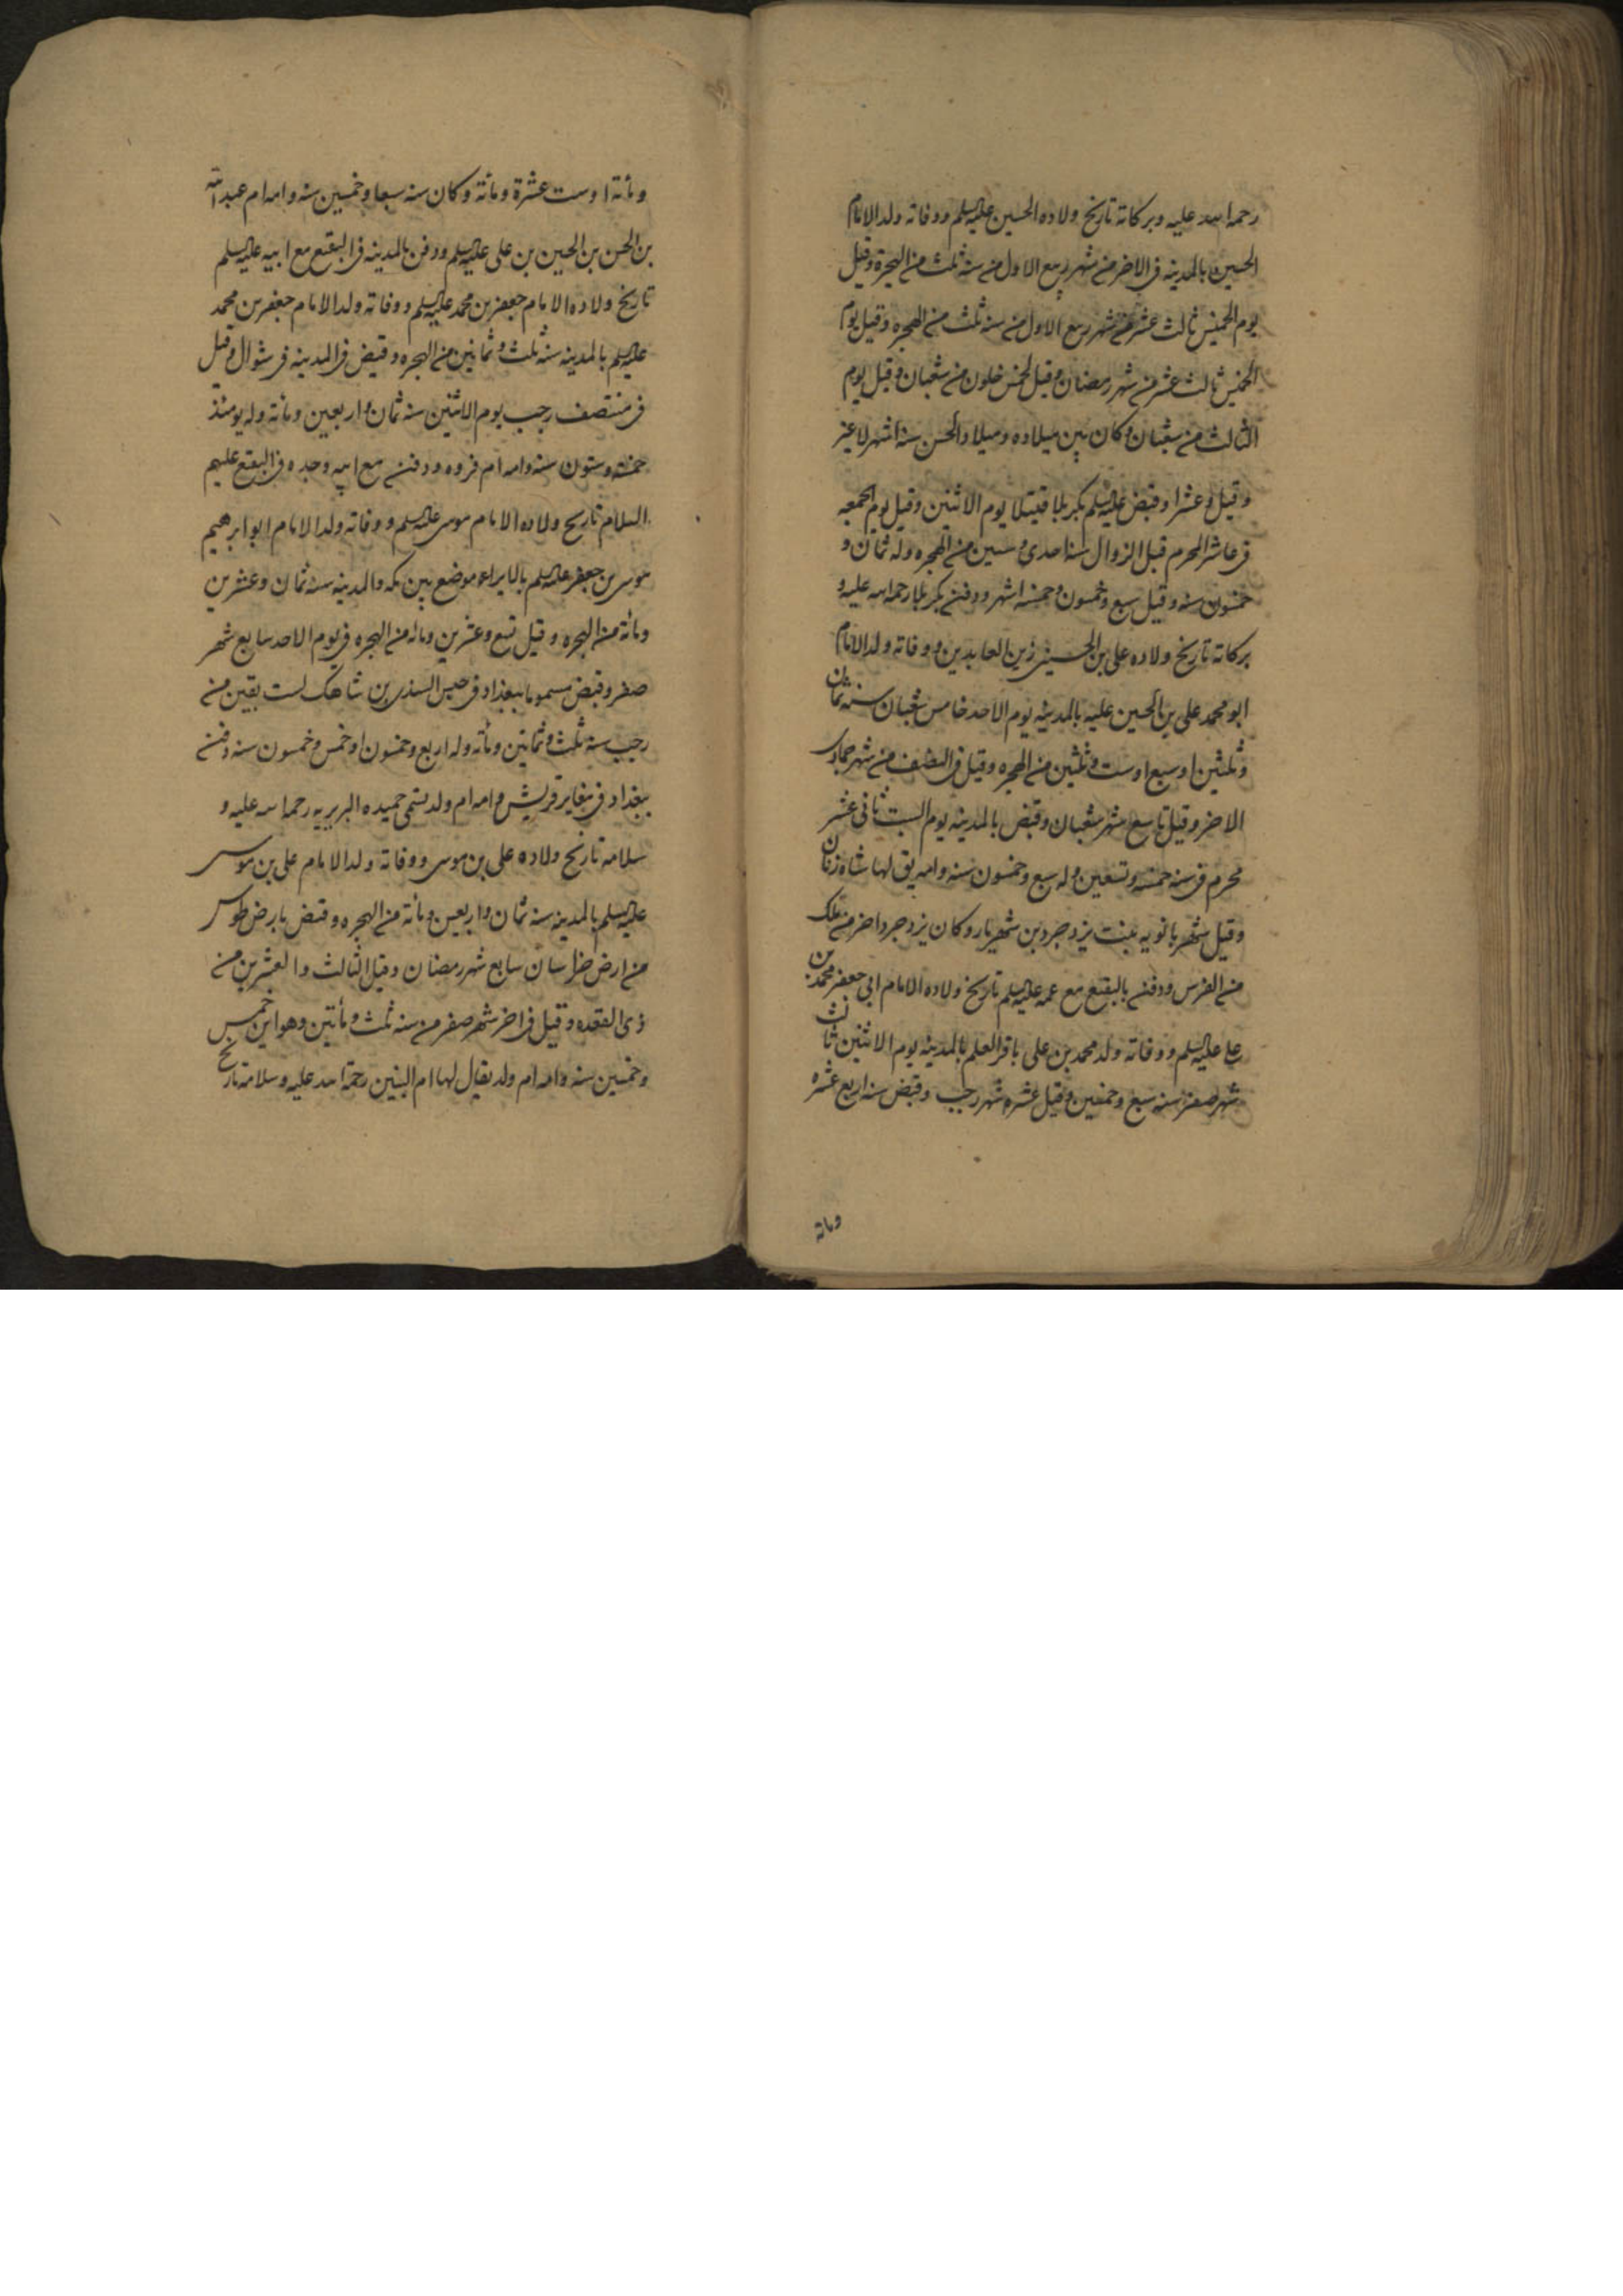 رحمة الله عليه وبركاته تاريخ ولاده الحسين عليه السلم ووفاته ولد الامام
الحسين بالمدينه فى الاخر من شهر ربيع الاول من سنه ثلث من الهجرة وقيل
يوم الخميس ثالث عشر من شهر ربيع الاول من سنه ثلث من الهجره وقيل يوم
الخميس ثالث عشر من شهر رمضان وقيل لخمس خلون من شعبان وقيل يوم
الثالث من شعبان وكان بين ميلاده وميلاد الحسن سته اشهر لا غير
وقيل وعشرا وقبض عليه السلم بكربلا قتيلا يوم الاثنين وقيل يوم الجمعه
فى عاشر المحرم قبل الزوال سنه احدى وستين من الهجره وله ثمان و
خمسون سنه وقيل سبع وخمسون وخمسه اشهر ودفن بكربلا رحمه الله عليه و
بركاته تاريخ ولاده على بن الحسين زين العابدين ووفاته ولد الامام
ابو محمد على بن الحسين عليه بالمدينه يوم الاحد خامس شعبان سنه ثمان
وثلثين او سبع او ست وثلثين من الهجره وقيل فى النصف من شهر جمادى
الاخر وقيل تاسع شهر شعبان وقبض بالمدينه يوم السبت ثانى عشر
محرم فى سنه خمسه وتسعين وله سبع وخمسون سنه وامه يق لها شاه زنان
وقيل شهربانويه بنت يزدجرد بن شهريار وكان يزدجرد اخر من ملك
من الفرس ودفن بالبقيع مع عمه عليه السلم تاريخ ولاده الامام ابى جعفر محمد بن
على عليه السلم ووفاته ولد محمد بن على باقر العلم بالمدينه يوم الاثنين ثالث
شهر صفر سنه سبع وخمسين وقيل عشره شهر رجب وقبض سنه اربع عشره
ومائة
ومائة او ست عشرة ومائة وكان سنه سبعا وخمسين سنه وامه ام عبد الله
بن الحسن بن الحسين بن على عليه السلم ودفن بالمدينه فى البقيع مع ابيه عليه السلم
تاريخ ولاده الامام جعفر بن محمد عليه السلم ووفاته ولد الامام جعفر بن محمد
عليه السلم بالمدينه سنه ثلث وثمانين من الهجره وقبض فى المدينه فى شوال وقيل
فى منتصف رجب يوم الاثنين سنه ثمان واربعين ومائة وله يومئذ
خمسة وستون سنه وامه ام فروه ودفن مع ابيه وجده فى البقيع عليهم
السلام تاريخ ولاده الامام موسى عليه السلم ووفاته ولد الامام ابو ابرهيم
موسى بن جعفر عليه السلم بالابواء موضع بين مكه والمدينه سنه ثمان وعشرين
ومائة من الهجره وقيل تسع وعشرين ومائه من الهجره فى يوم الاحد سابع شهر
صفر وقبض مسموما ببغداد فى حبس السندى بن شاهك لست بقين من
رجب سنه ثلث وثمانين ومائه وله اربع وخمسون او خمس وخمسون سنه ودفن
ببغداد فى مقابر قريش وامه ام ولد تسمى حميده البربريه رحمه الله عليه و
سلامه تاريخ ولاده على بن موسى ووفاته ولد الامام على بن موسى
عليه السلم بالمدينه سنه ثمان واربعين ومائة من الهجره وقبض بارض طوس
من ارض خراسان سابع شهر رمضان وقيل الثالث والعشرين من
ذى القعده وقيل فى اخر شهر صفر من سنه ثلث ومأتين وهو ابن خمس
وخمسين سنه وامه ام ولد يقال لها ام البنين رحمة الله عليه وسلامه تاريخ